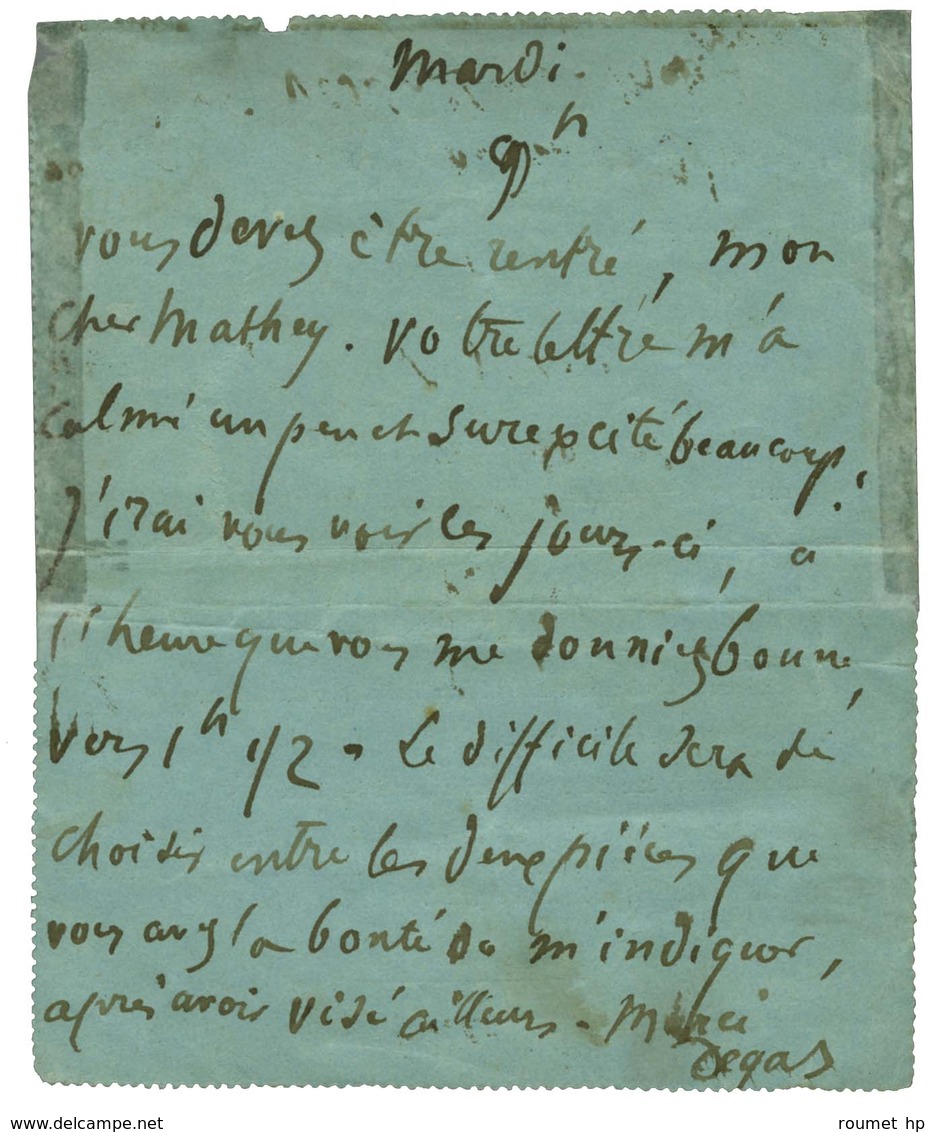 Mardi.
9h
vous devez être rentré, mon
cher Mathey. Votre lettre m'a
calmé un peu et surexcité beaucoup.
J'irai vous voir ces jours-ci, à
l'heure que vous me donniez bonne,
vers 1h 1/2 - Le difficile sera de
choisir entre les deux pièces que
vous avez la bonté de m'indiquer,
après avoir visé ailleurs - Merci
Degas
www.delcampe.net
roumet hp